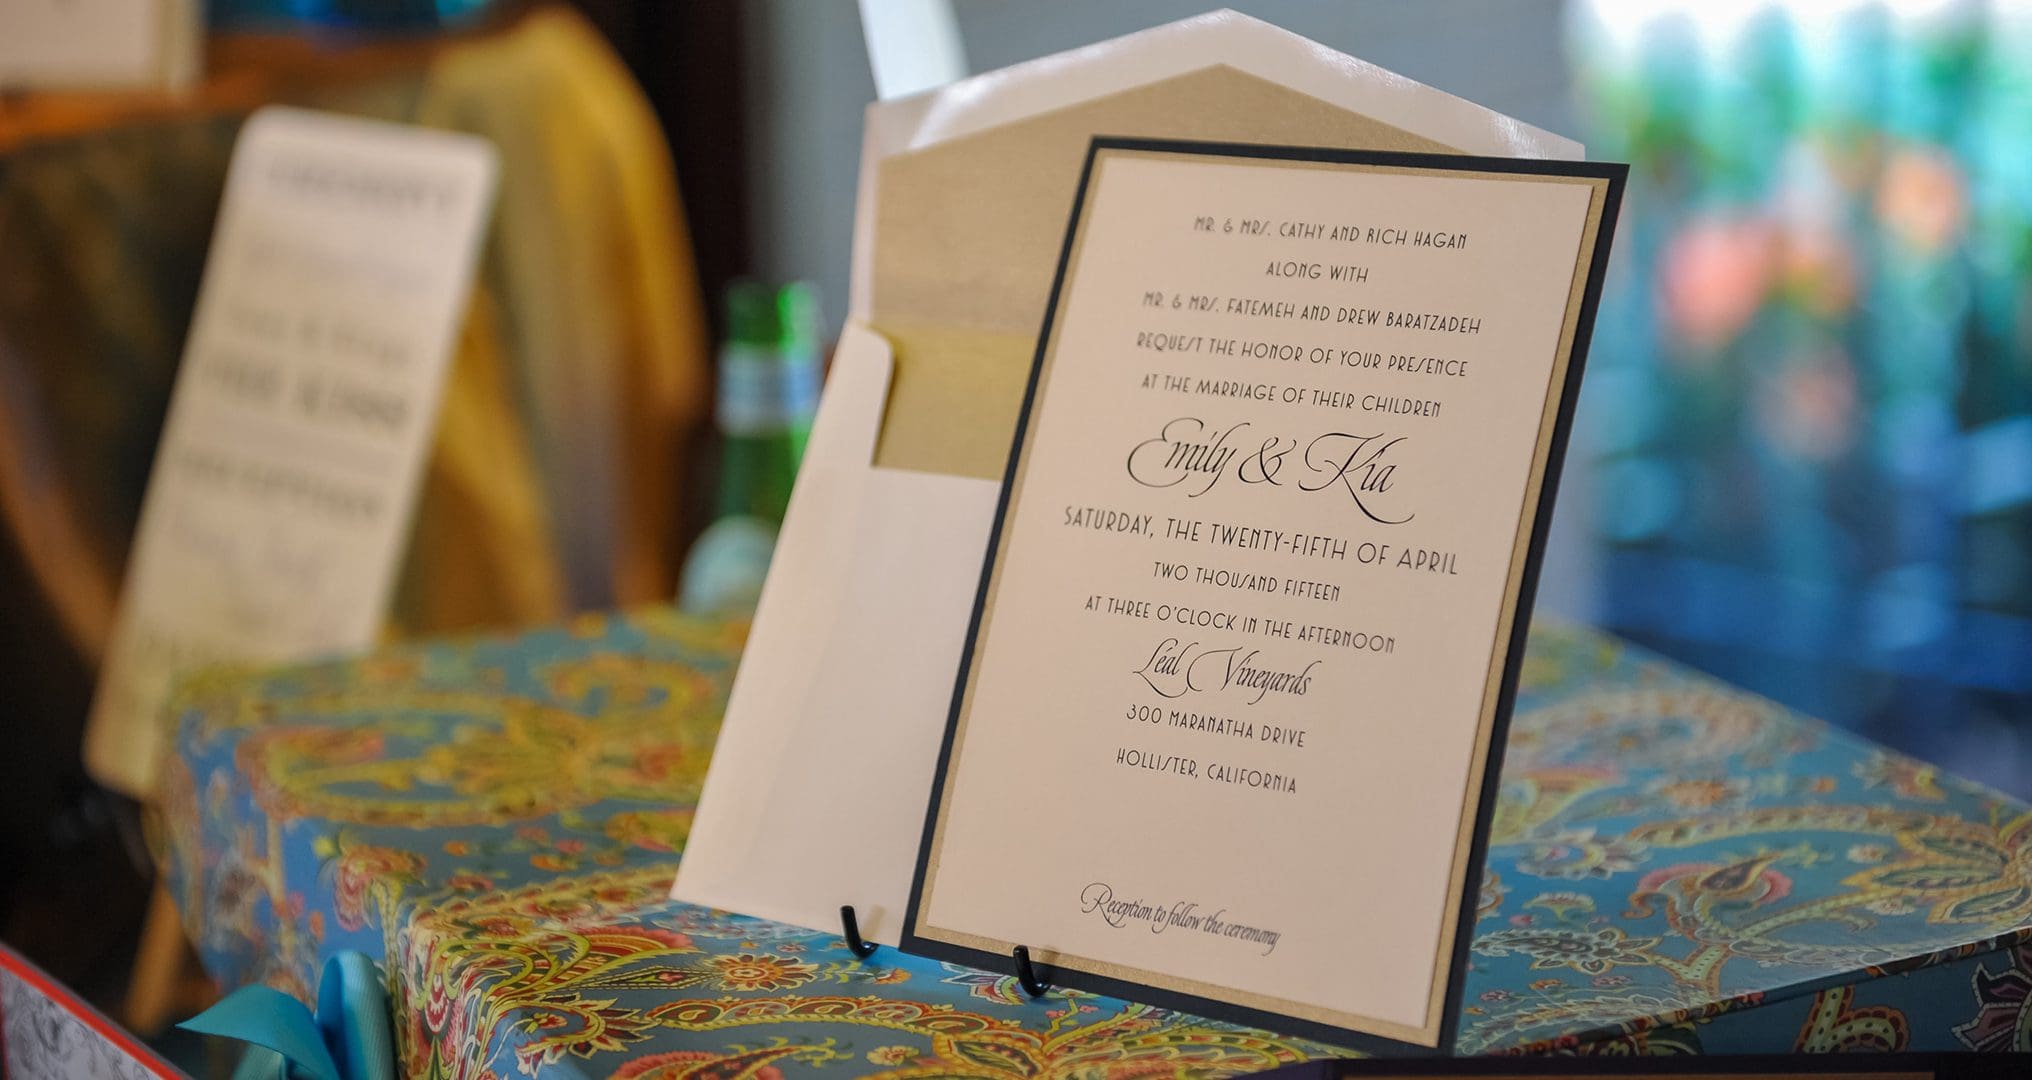 MR. & MRS. CATHY AND RICH HAGAN
ALONG WITH
MR. & MRS. FATEMEH AND DREW BARATZADEH
REQUEST THE HONOR OF YOUR PRESENCE
AT THE MARRIAGE OF THEIR CHILDREN
Emily & Kia
SATURDAY, THE TWENTY-FIFTH OF APRIL
TWO THOUSAND FIFTEEN
AT THREE O'CLOCK IN THE AFTERNOON
Léal Vineyards
300 MARANATHA DRIVE
HOLLISTER, CALIFORNIA
Reception to follow the ceremony